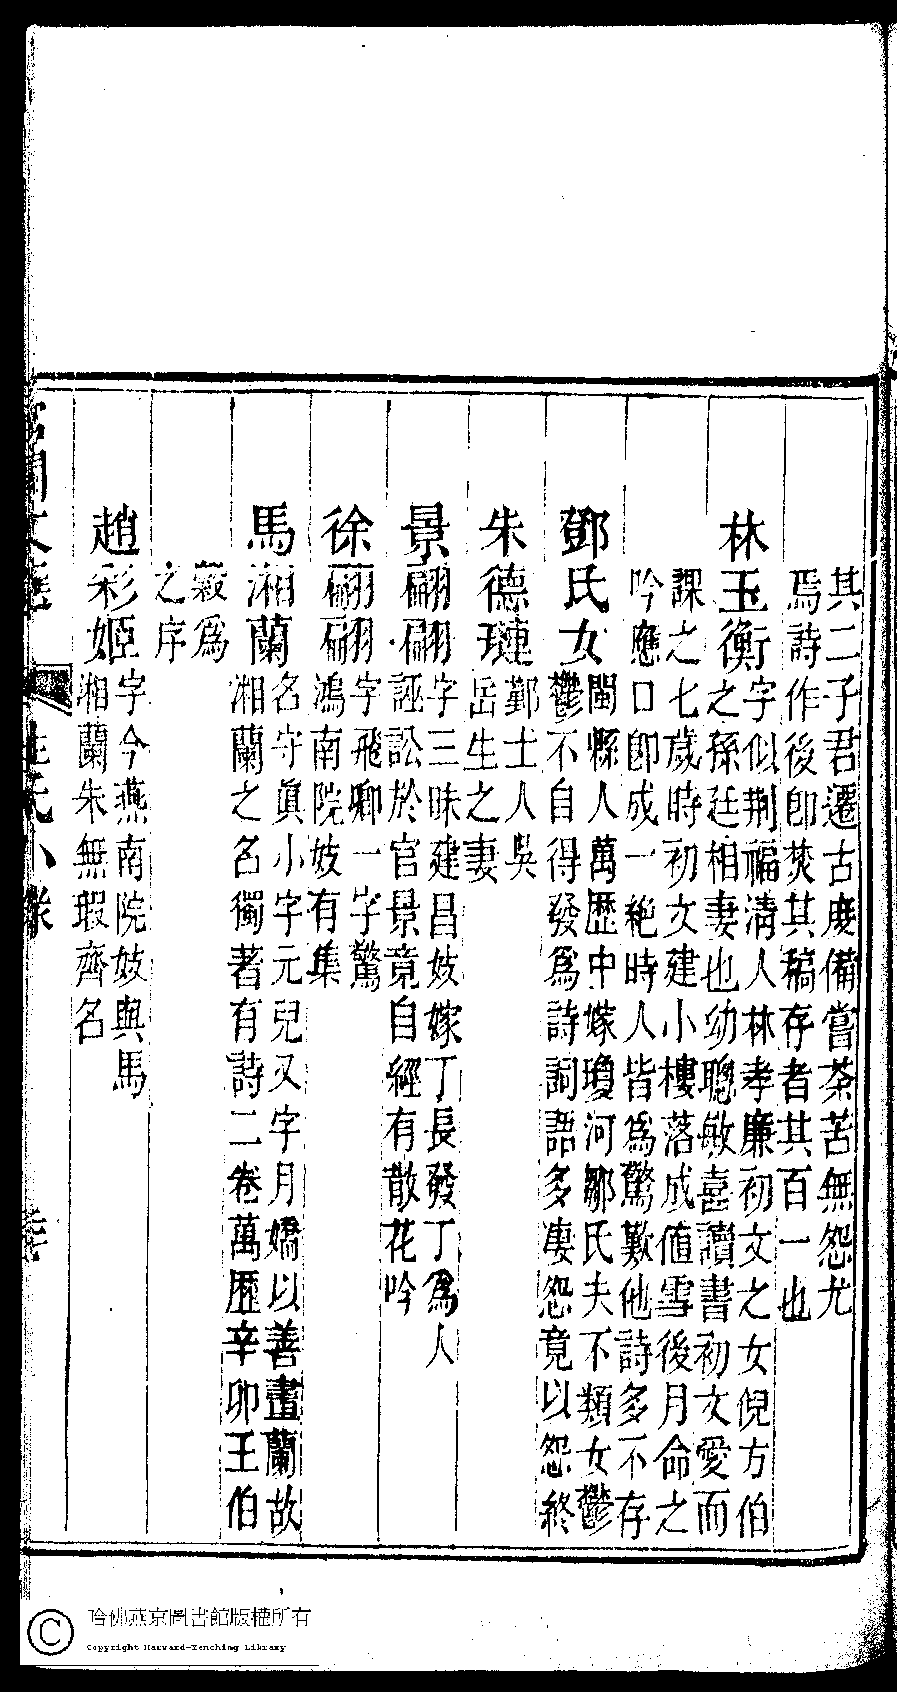 其二子君遷古度備嘗荼苦無怨尤
焉詩作後卽焚其稿存者其百一也
林玉衡
字似荆福清人林孝廉初文之女倪方伯
之孫廷相妻也幼聰敏喜讀書初文愛而
課之七歲時初文建小樓落成值雪後月命之
吟應口卽成一絶時人皆爲驚歎他詩多不存
鄧氏女
閩縣人萬歷中嫁瓊河鄒氏夫不類女鬱
鬱不自得發爲詩詞語多凄怨竟以怨終
朱德璉
鄞士人吳
岳生之妻
景翩翩
字三昧建昌妓嫁丁長發丁爲人
誣訟於官景竟自經有散花吟
徐翩翩
字飛卿一字驚
鴻南院妓有集
馬湘蘭
名守眞小字元兒又字月嬌以善畫蘭故
湘蘭之名獨著有詩二卷萬歷辛卯王伯
榖爲
之序
趙彩姬
字今燕南院妓與馬
湘蘭朱無瑕齊名
宮閨文選 姓氏小錄
哈佛燕京圖書館版權所有
Copyright Harvard-Yenching Library